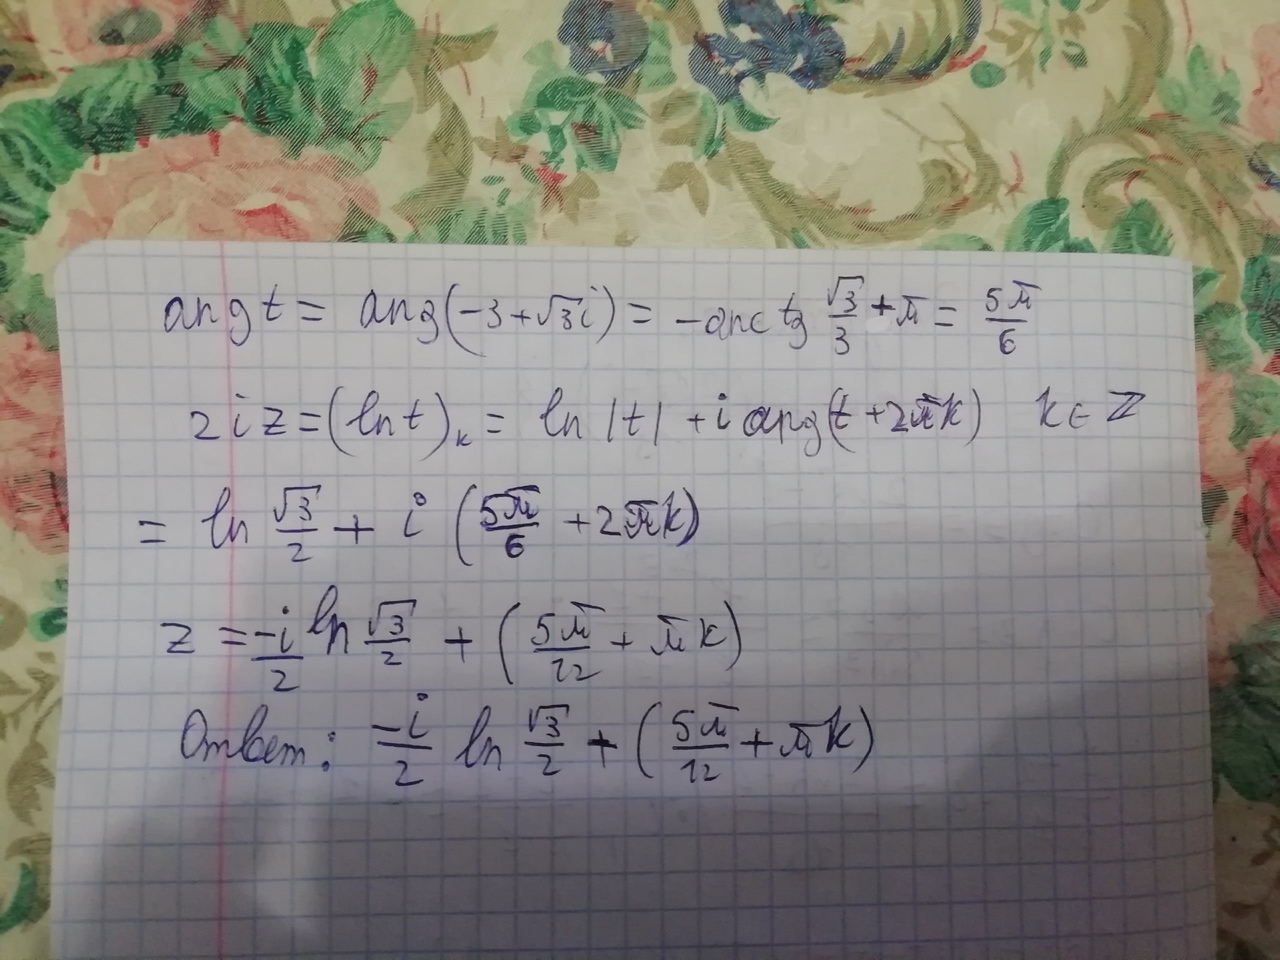 arg t = arg(-3+√3i) = -arctg √3/3 + π = 5π/6
2iz = (ln t)ₖ = ln |t| + i arg(t + 2πk) k ∈ Z
= ln √3/2 + i (5π/6 + 2πk)
z = -i/2 ln √3/2 + (5π/12 + πk)
Ответ: -i/2 ln √3/2 + (5π/12 + πk)